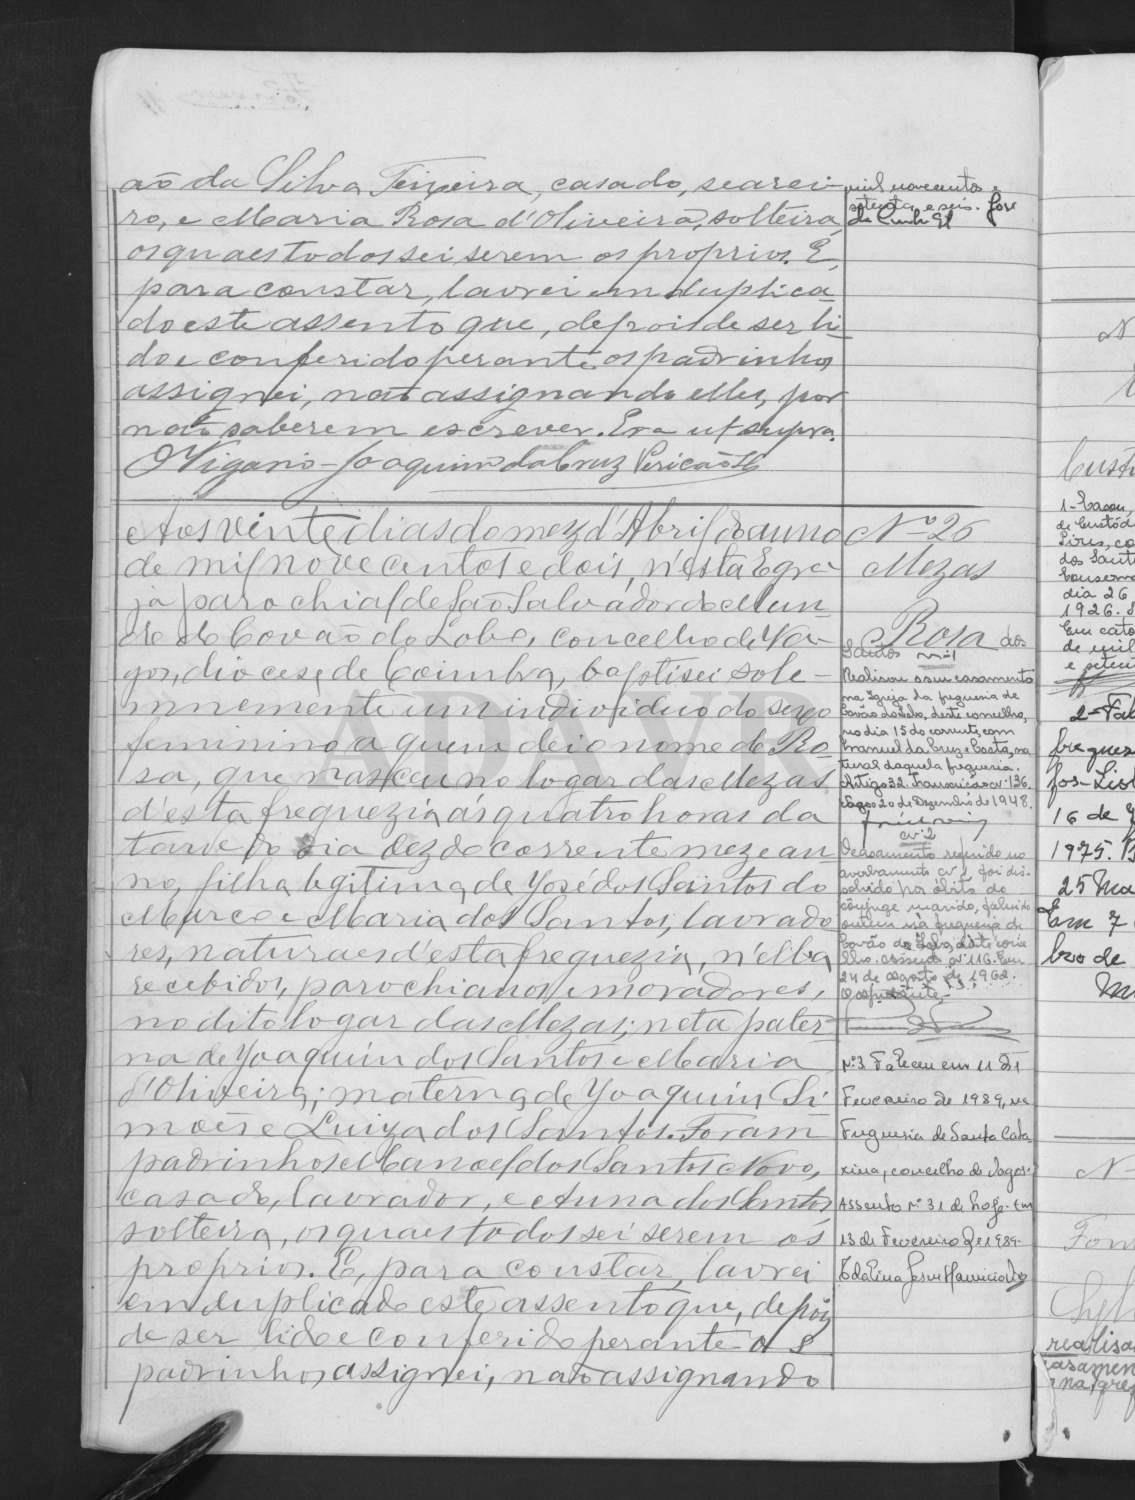 ão da Silva Teixeira, casado, searei-
ro, e Maria Rosa d'Oliveira, solteira,
os quaes todos sei serem os proprios. E,
para constar, lavrei em duplica-
do este assento que, depois de ser li-
do e conferido perante os padrinhos
assignei, não assignando elles, por
não saberem escrever. Era ut supra.
O Vigario - Joaquim da Cruz Pericão
mil novecentos e
setenta e seis. José
da Cunha
Aos vinte dias do mez d'Abril do anno
de mil nove centos e dois, n'esta Egre-
ja parochial de São Salvador do Mun-
do de Covão do Lobo, concelho de Va-
gos, diocese de Coimbra, baptisei sole-
mnemente um individuo do sexo
feminino a quem dei o nome de Ro-
sa, que nasceu no logar das Mezas
d'esta freguezia ás quatro horas da
tarde do dia dez do corrente mez e an-
no, filha legitima de José dos Santos do
Marco e Maria dos Santos, lavrado-
res, naturaes d'esta freguezia, n'ella
recebidos, parochianos, e moradores,
no dito logar das Mezas; neta pater-
na de Joaquim dos Santos e Maria
d'Oliveira; materna de Joaquim Si-
mões e Luiza dos Santos. Foram
padrinhos Manoel dos Santos Novo,
casado, lavrador, e Anna dos Santos
solteira, os quaes todos sei serem os
proprios. E, para constar, lavrei
em duplicado este assento que, depois
de ser lido e conferido perante os
padrinhos, assignei, não assignando
Nº 26
Mezas
Rosa dos
Santos nº 1
Realisou o seu casamento
na Igreja da freguesia de
Covão do Lobo, deste concelho,
no dia 15 do corrente, com
Manuel da Cruz e Costa, na-
tural daquela freguesia.
Artigo 32. Transcrição nº 136.
Vagos 20 de Dezembro de 1948.
nº 2
O casamento referido no
averbamento nº 1 foi dis-
solvido por óbito do
cônjuge marido, falecido
ontem na freguesia de
Covão do Lobo, deste conce-
lho. Assento nº 116. Em
24 de Agosto de 1962.
O ajudante,
Nº 3 Faleceu em 11 de
Fevereiro de 1989, na
Freguesia de Santa Cata-
rina, concelho de Vagos.
Assento nº 31 de hoje. Em
13 de Fevereiro de 1989.
ADAVR
1- Casou,
de Custód
Pires, co
dos Sant
Conserva
dia 26
1926.
Em cató
de mil
e
2- Fal
fregues
fos-Lisb
16 de
1975.
25 Ma
Em 7
bro de
realisa
casamen
na freg